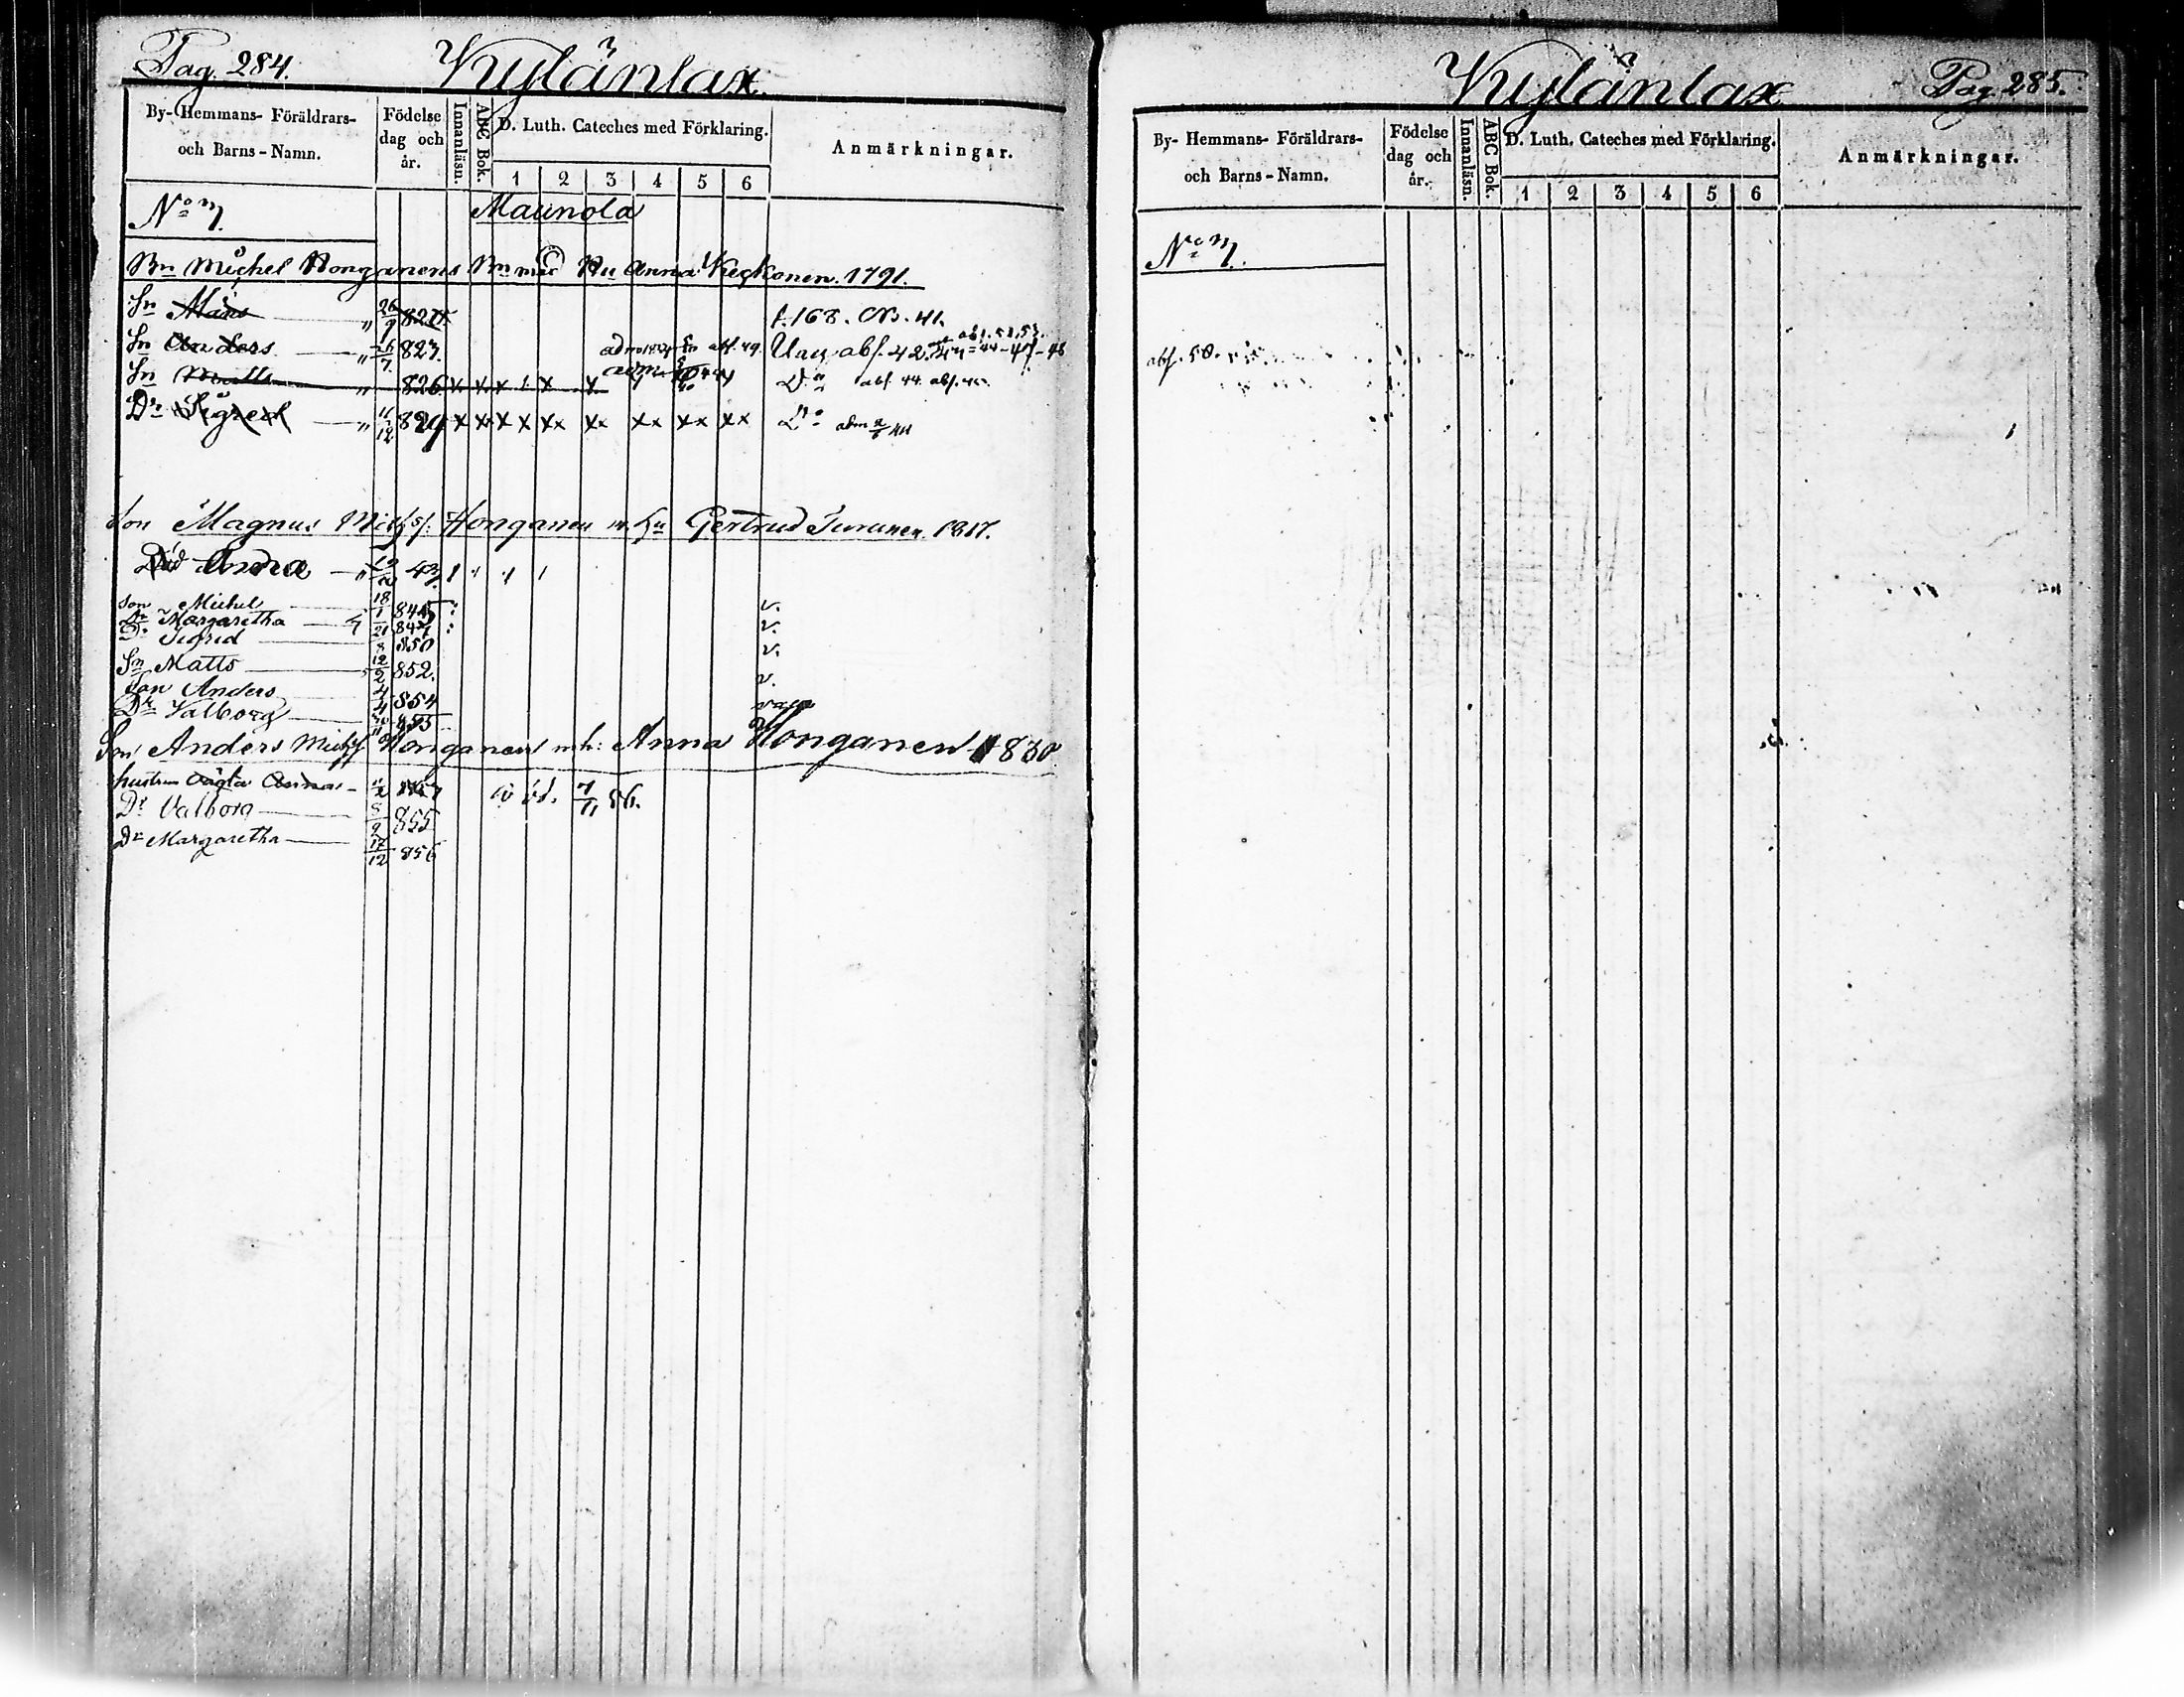 Pag. 284. Kylänlax.
By- Hemmans- Föräldrars- och Barns-Namn.
Födelse dag och år.
Innanläsn.
ABC Bok.
D. Luth. Cateches med Förklaring.
1 2 3 4 5 6
Anmärkningar.
No 7. Maunola
Bn Michel Honganens Bn mäg Hu Anna 1791.
Sn Måns " 26/9 f. 168. CB. 41.
Sn Anders " 16/7 823. abf. 49. Uag abf. 42.
Sn Matts " 826 x x x Do abf. 44. abf. 45.
Dr Sigred " 11/12 824 x x x x xx xx xx xx xx Do adm 44
Son Magnus Michs: Honganen m. hu Gertrud Turunen. 1817.
Anna " 43
Son Michel 18/1 845 v.
Dr Margaretha 847 v.
Dr Sigrid 850 v.
Sn Matts 12/2 852. v.
Son Anders 4/4 854
Dr Valborg 855
Son Anders Michs Honganen m h: Anna Honganen 1830
hustrun
Dr Valborg 5/2 855
Dr Margaretha 17/12 856
Kylänlax Pag. 285.
By- Hemmans- Föräldrars- och Barns-Namn.
Födelse dag och år.
Innanläsn.
ABC Bok.
D. Luth. Cateches med Förklaring.
1 2 3 4 5 6
Anmärkningar.
No 7.
abf. 50.